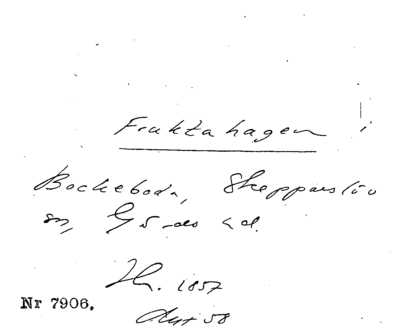 Fruktahagen
Bockeboda, Skepparslöv
sn, Gärds hd.
Nr 7906.